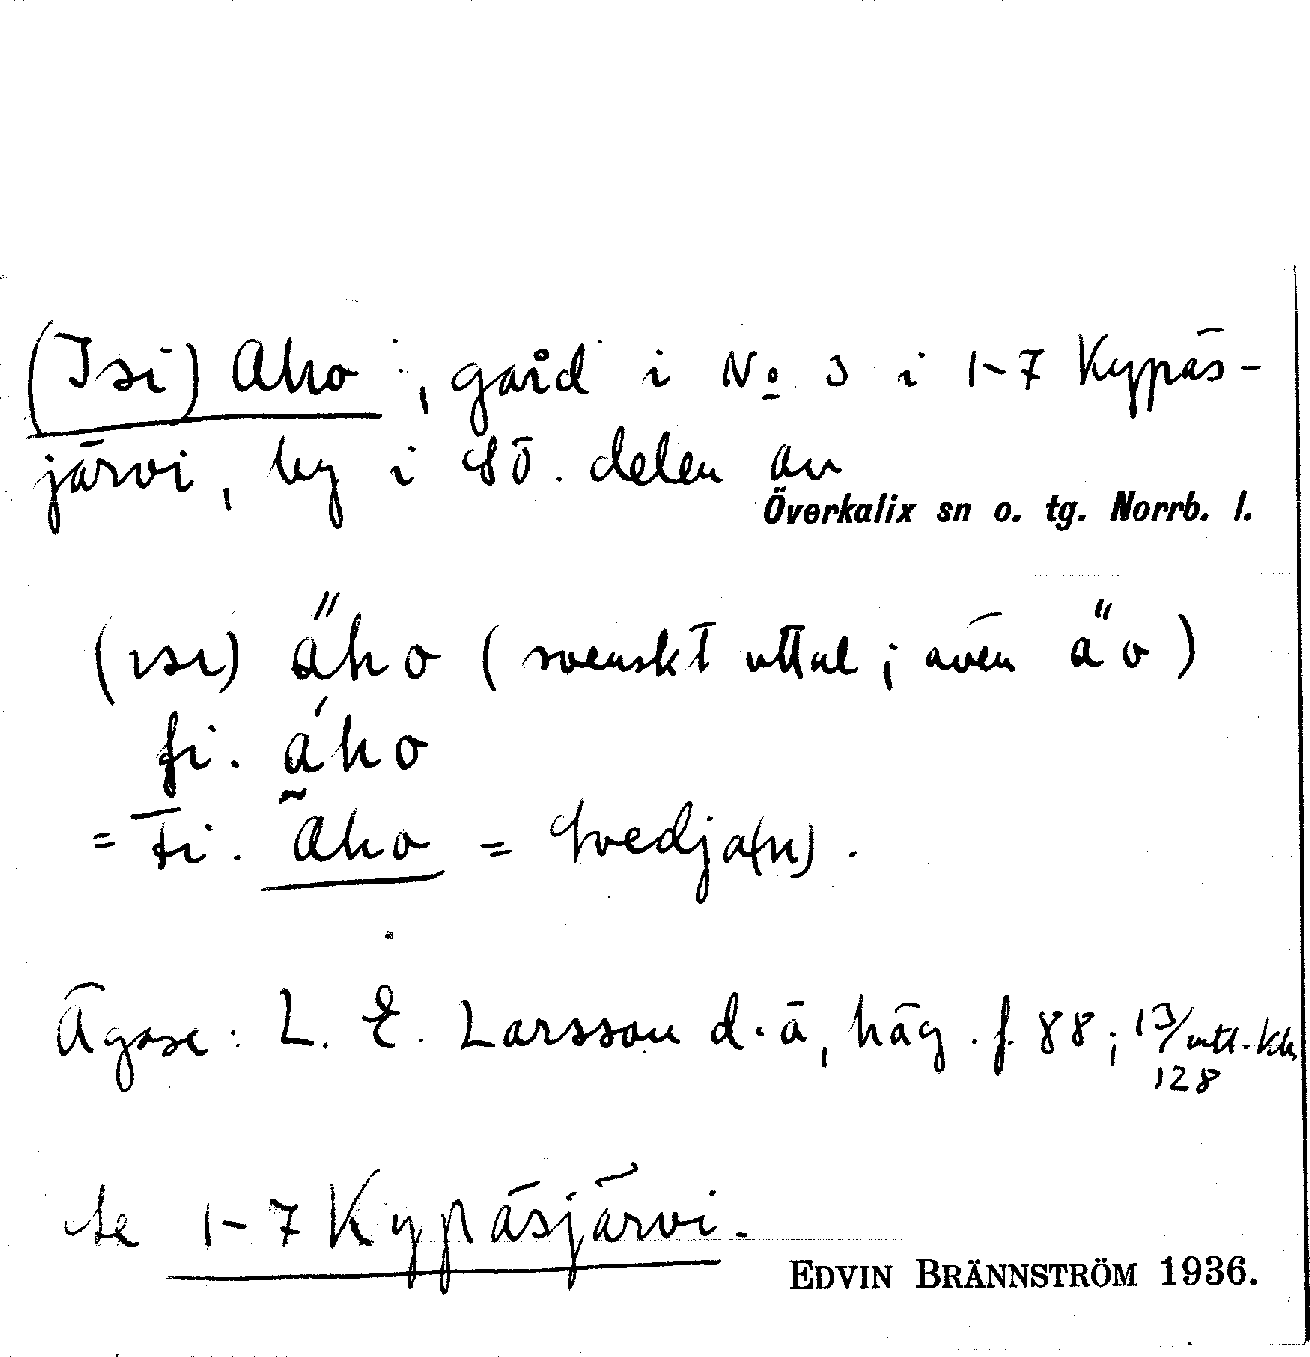 (Isi) Aho, gård i No 3 i 1-7 Kypäs-
järvi, by i SÖ. delen av
Överkalix sn o. tg. Norrb. l.
(ısı) a̋ho (svenskt uttal; även a̋o)
fi. áho
= Fi. Aho = Svedja(n).
Ägare: L. E. Larsson d.ä, häg. f. 88; 13/mtl. kh
128
Se 1-7 Kypäsjärvi.
EDVIN BRÄNNSTRÖM 1936.